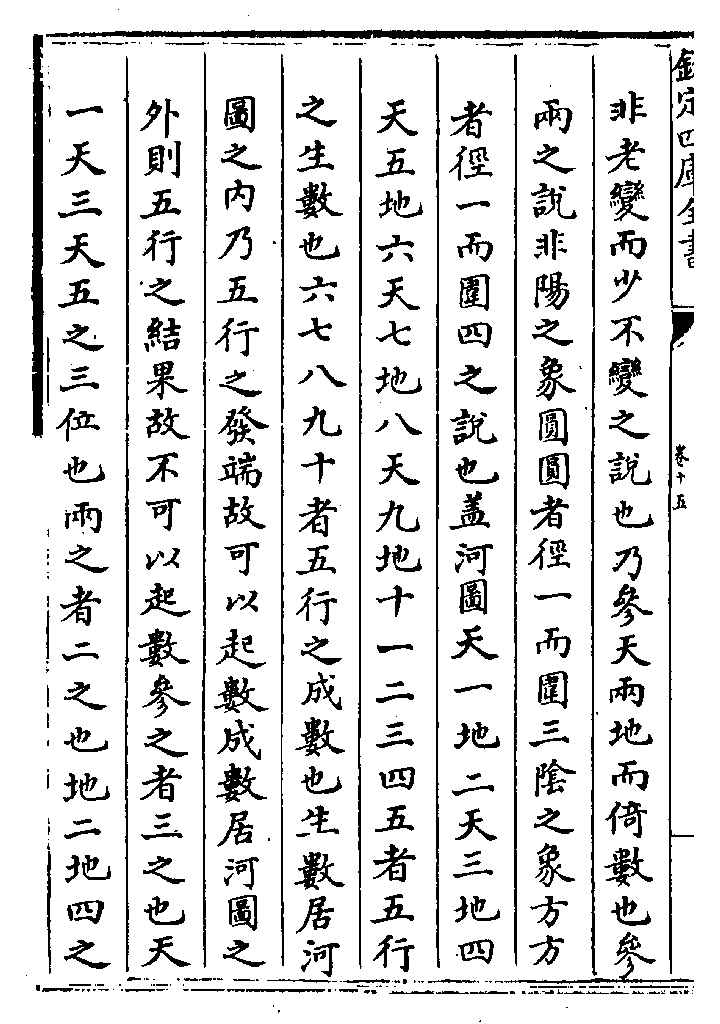 欽定四庫全書
卷十五
非老變而少不變之說也乃參天兩地而倚數也參
兩之說非陽之象圓圓者徑一而圍三陰之象方方
者徑一而圍四之說也蓋河圖天一地二天三地四
天五地六天七地八天九地十一二三四五者五行
之生數也六七八九十者五行之成數也生數居河
圖之內乃五行之發端故可以起數成數居河圖之
外則五行之結果故不可以起數參之者三之也天
一天三天五之三位也兩之者二之也地二地四之